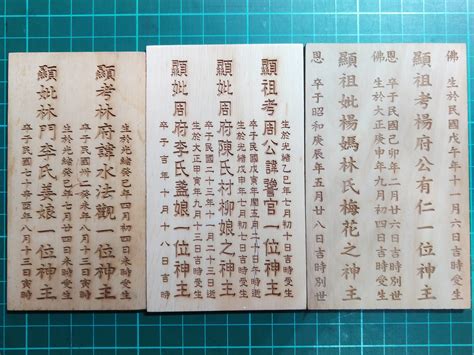 佛 生於民國戊午年十一月六日吉時受生
顯祖考楊府公有仁一位神主
佛 卒于民國卯年二月廿六日吉時別世
生於大正庚申年九月初四日吉時受生
顯祖妣楊媽林氏梅花之神主
恩 卒于昭和庚辰年五月廿八日吉時別世
生於光緒乙巳年七月初一日吉時受生
顯祖考周公諱官一位神主
卒于民國年閏五月三十日午時逝
生於光緒戊申年七月初八日吉時受生
顯妣周府陳氏村柳娘之神主
卒于民國二十九年二月十三日吉時逝
生於大正甲寅年九月十三日吉時受生
顯妣周府李氏蓋娘一位神主
卒于吉年十月十八日吉時
生於光緒癸巳年四月初四日未時受生
顯考林府諱水法觀一位神主
卒于民國癸未年八月十三日
生於光緒年八月初四日吉時受生
顯妣林門李氏姜娘一位神主
卒于民國七十年八月十三日寅時